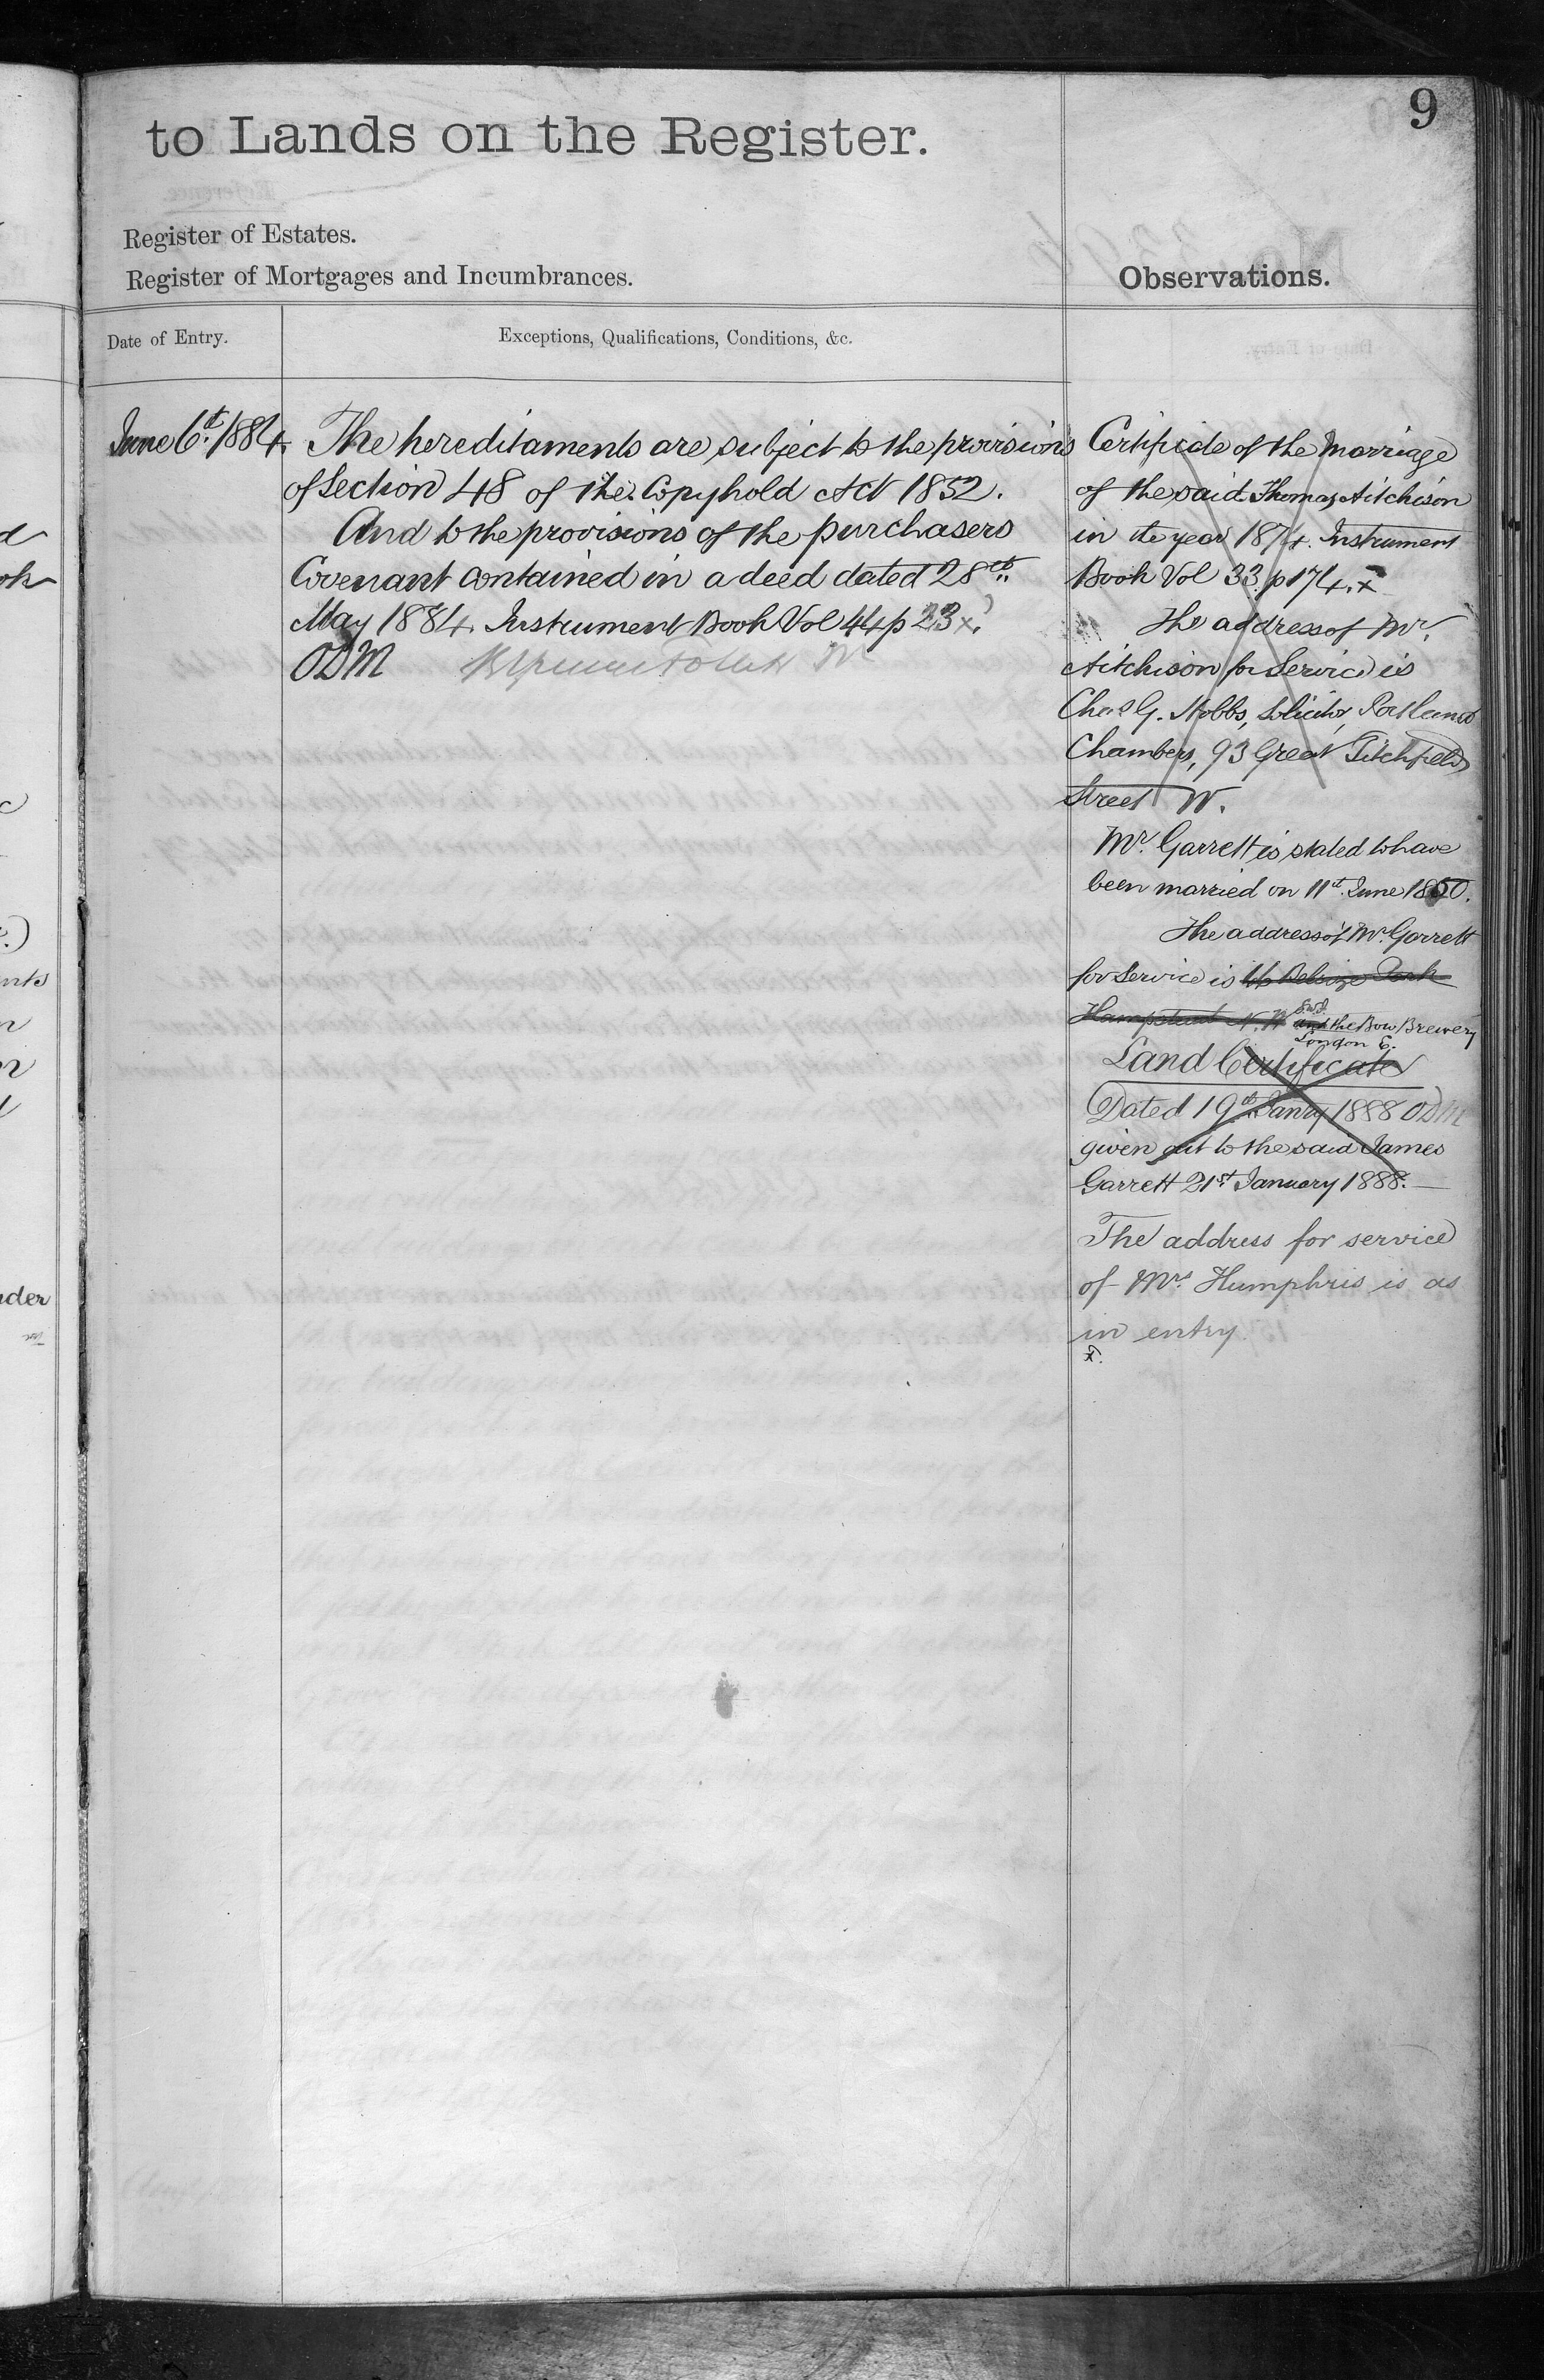 9
to Lands on the Register.
Register of Estates.
Register of Mortgages and Incumbrances.
Observations.
Date of Entry.
Exceptions, Qualifications, Conditions, &c.
June 6th. 1884.
The hereditaments are subject to the provisions
of Section 48 of the Copyhold Act 1852.
And to the provisions of the purchasers
Covenant contained in a deed dated 28th.
May 1884. Instrument Book Vol 44 p 23 x.
ODM
Certificate of the Marriage
of the said Thomas Aitchison
in the year 1874. Instrument
Book Vol 33. p 174. x
The address of Mr.
Aitchison for Service is
Chas G. Hobbs, Solicitor, Portland
Chambers, 93 Great Titchfield
Street W.
Mr. Garrett is stated to have
been married on 11th. June 1850.
The address of Mr. Garrett
for Service is 46 Belsize Park
Hampstead N.W and the Bow Brewery
London E.
Land Certificate
Dated 19th Janry 1888 ODM
given out to the said James
Garrett 21st. January 1888.
The address for service
of Mrs. Humphris is as
in entry.
x.